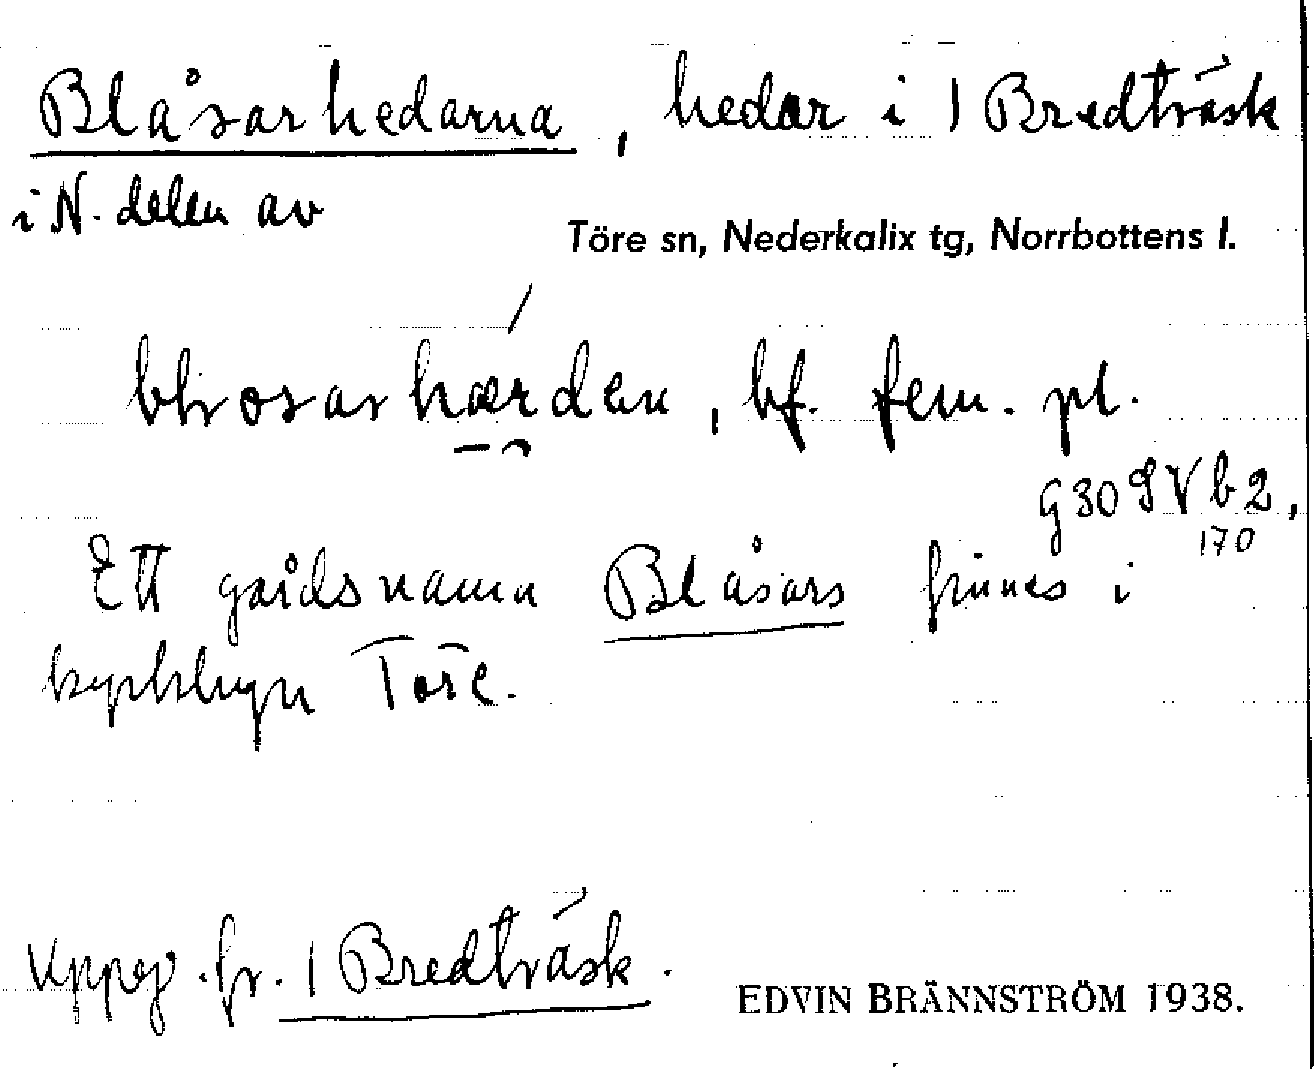 Blåsarhedarna, hedar i 1 Bredträsk
i N. delen av
Töre sn, Nederkalix tg, Norrbottens l.
bf. fem. pl.
G30 S V b2,
170
Ett gårdsnamn Blåsars finnes i
kyrkbyn Töre.
Uppg. fr. 1 Bredträsk.
EDVIN BRÄNNSTRÖM 1938.